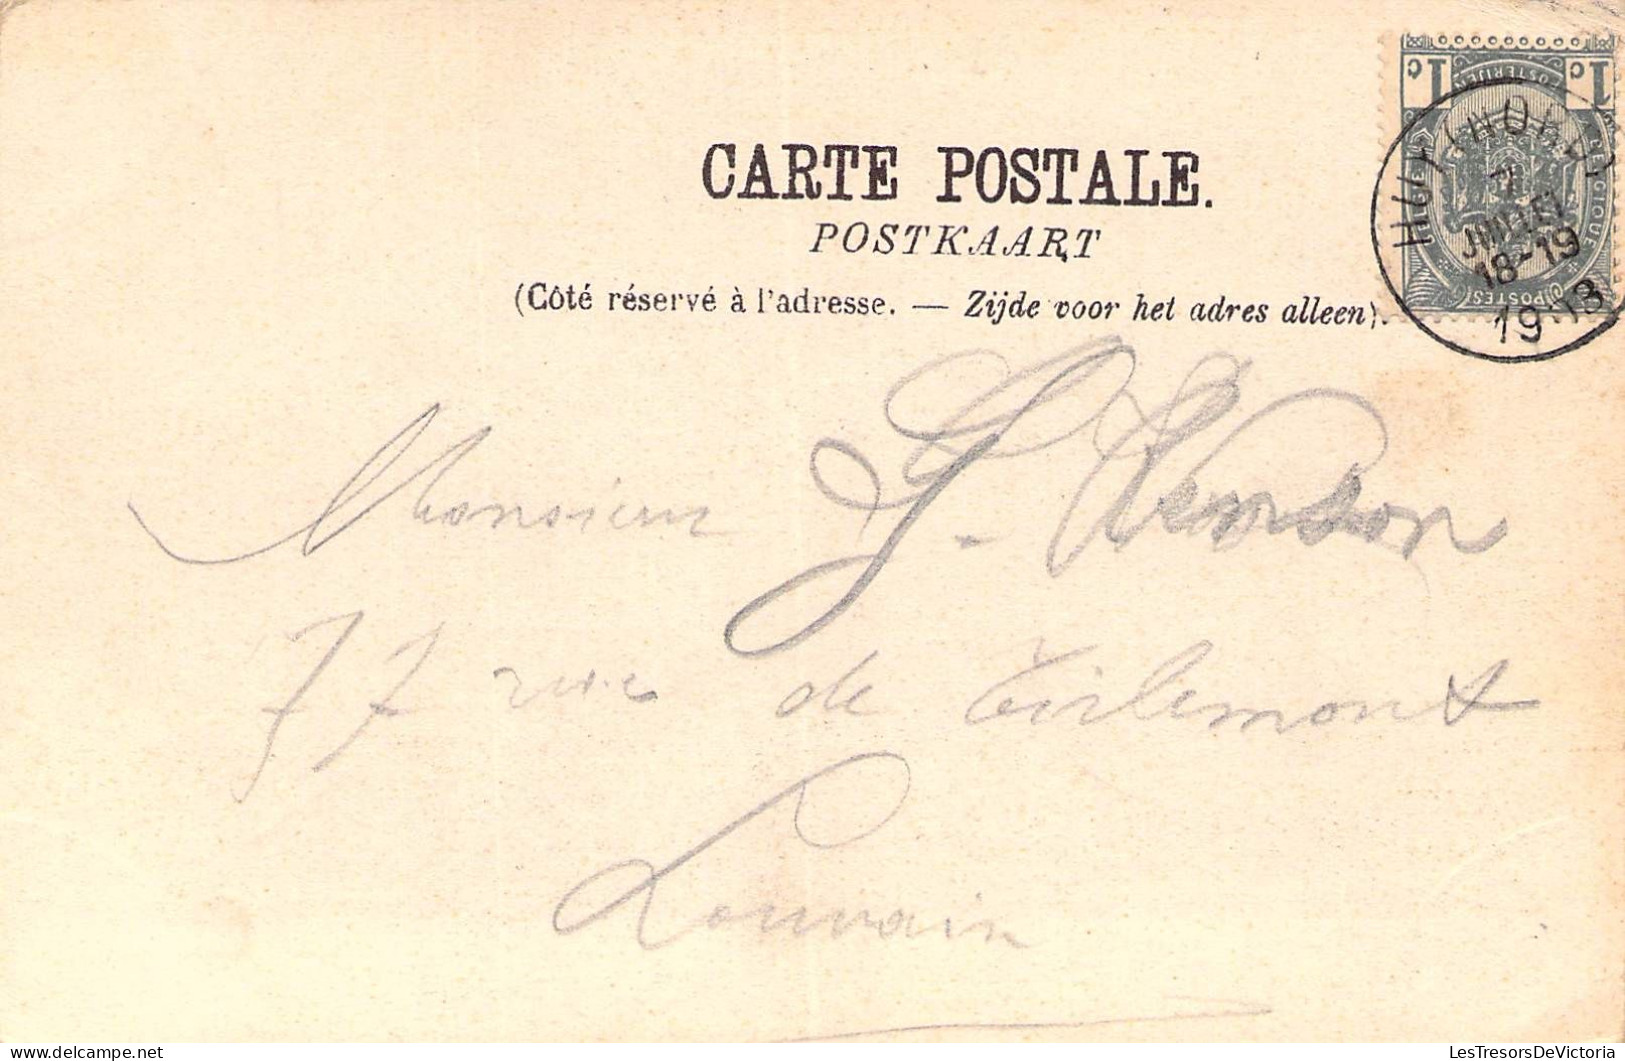 CARTE POSTALE.
POSTKAART
(Côté réservé à l'adresse. — Zijde voor het adres alleen).
1c 1c
POSTERIJEN
BELGIQUE
POSTES
HUY (NORD)
7
JUILLET
18-19
19:13
Monsieur
77 rue de Tirlemont
Louvain
LesTresorsDeVictoria